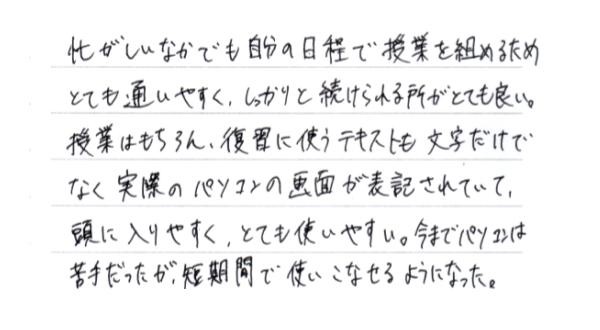 忙がしいなかでも自分の日程で授業を組めるため
とても通いやすく、しっかりと続けられる所がとても良い。
授業はもちろん、復習に使うテキストも文字だけで
なく実際のパソコンの画面が表記されていて、
頭に入りやすく、とても使いやすい。今までパソコンは
苦手だったが、短期間で使いこなせるようになった。